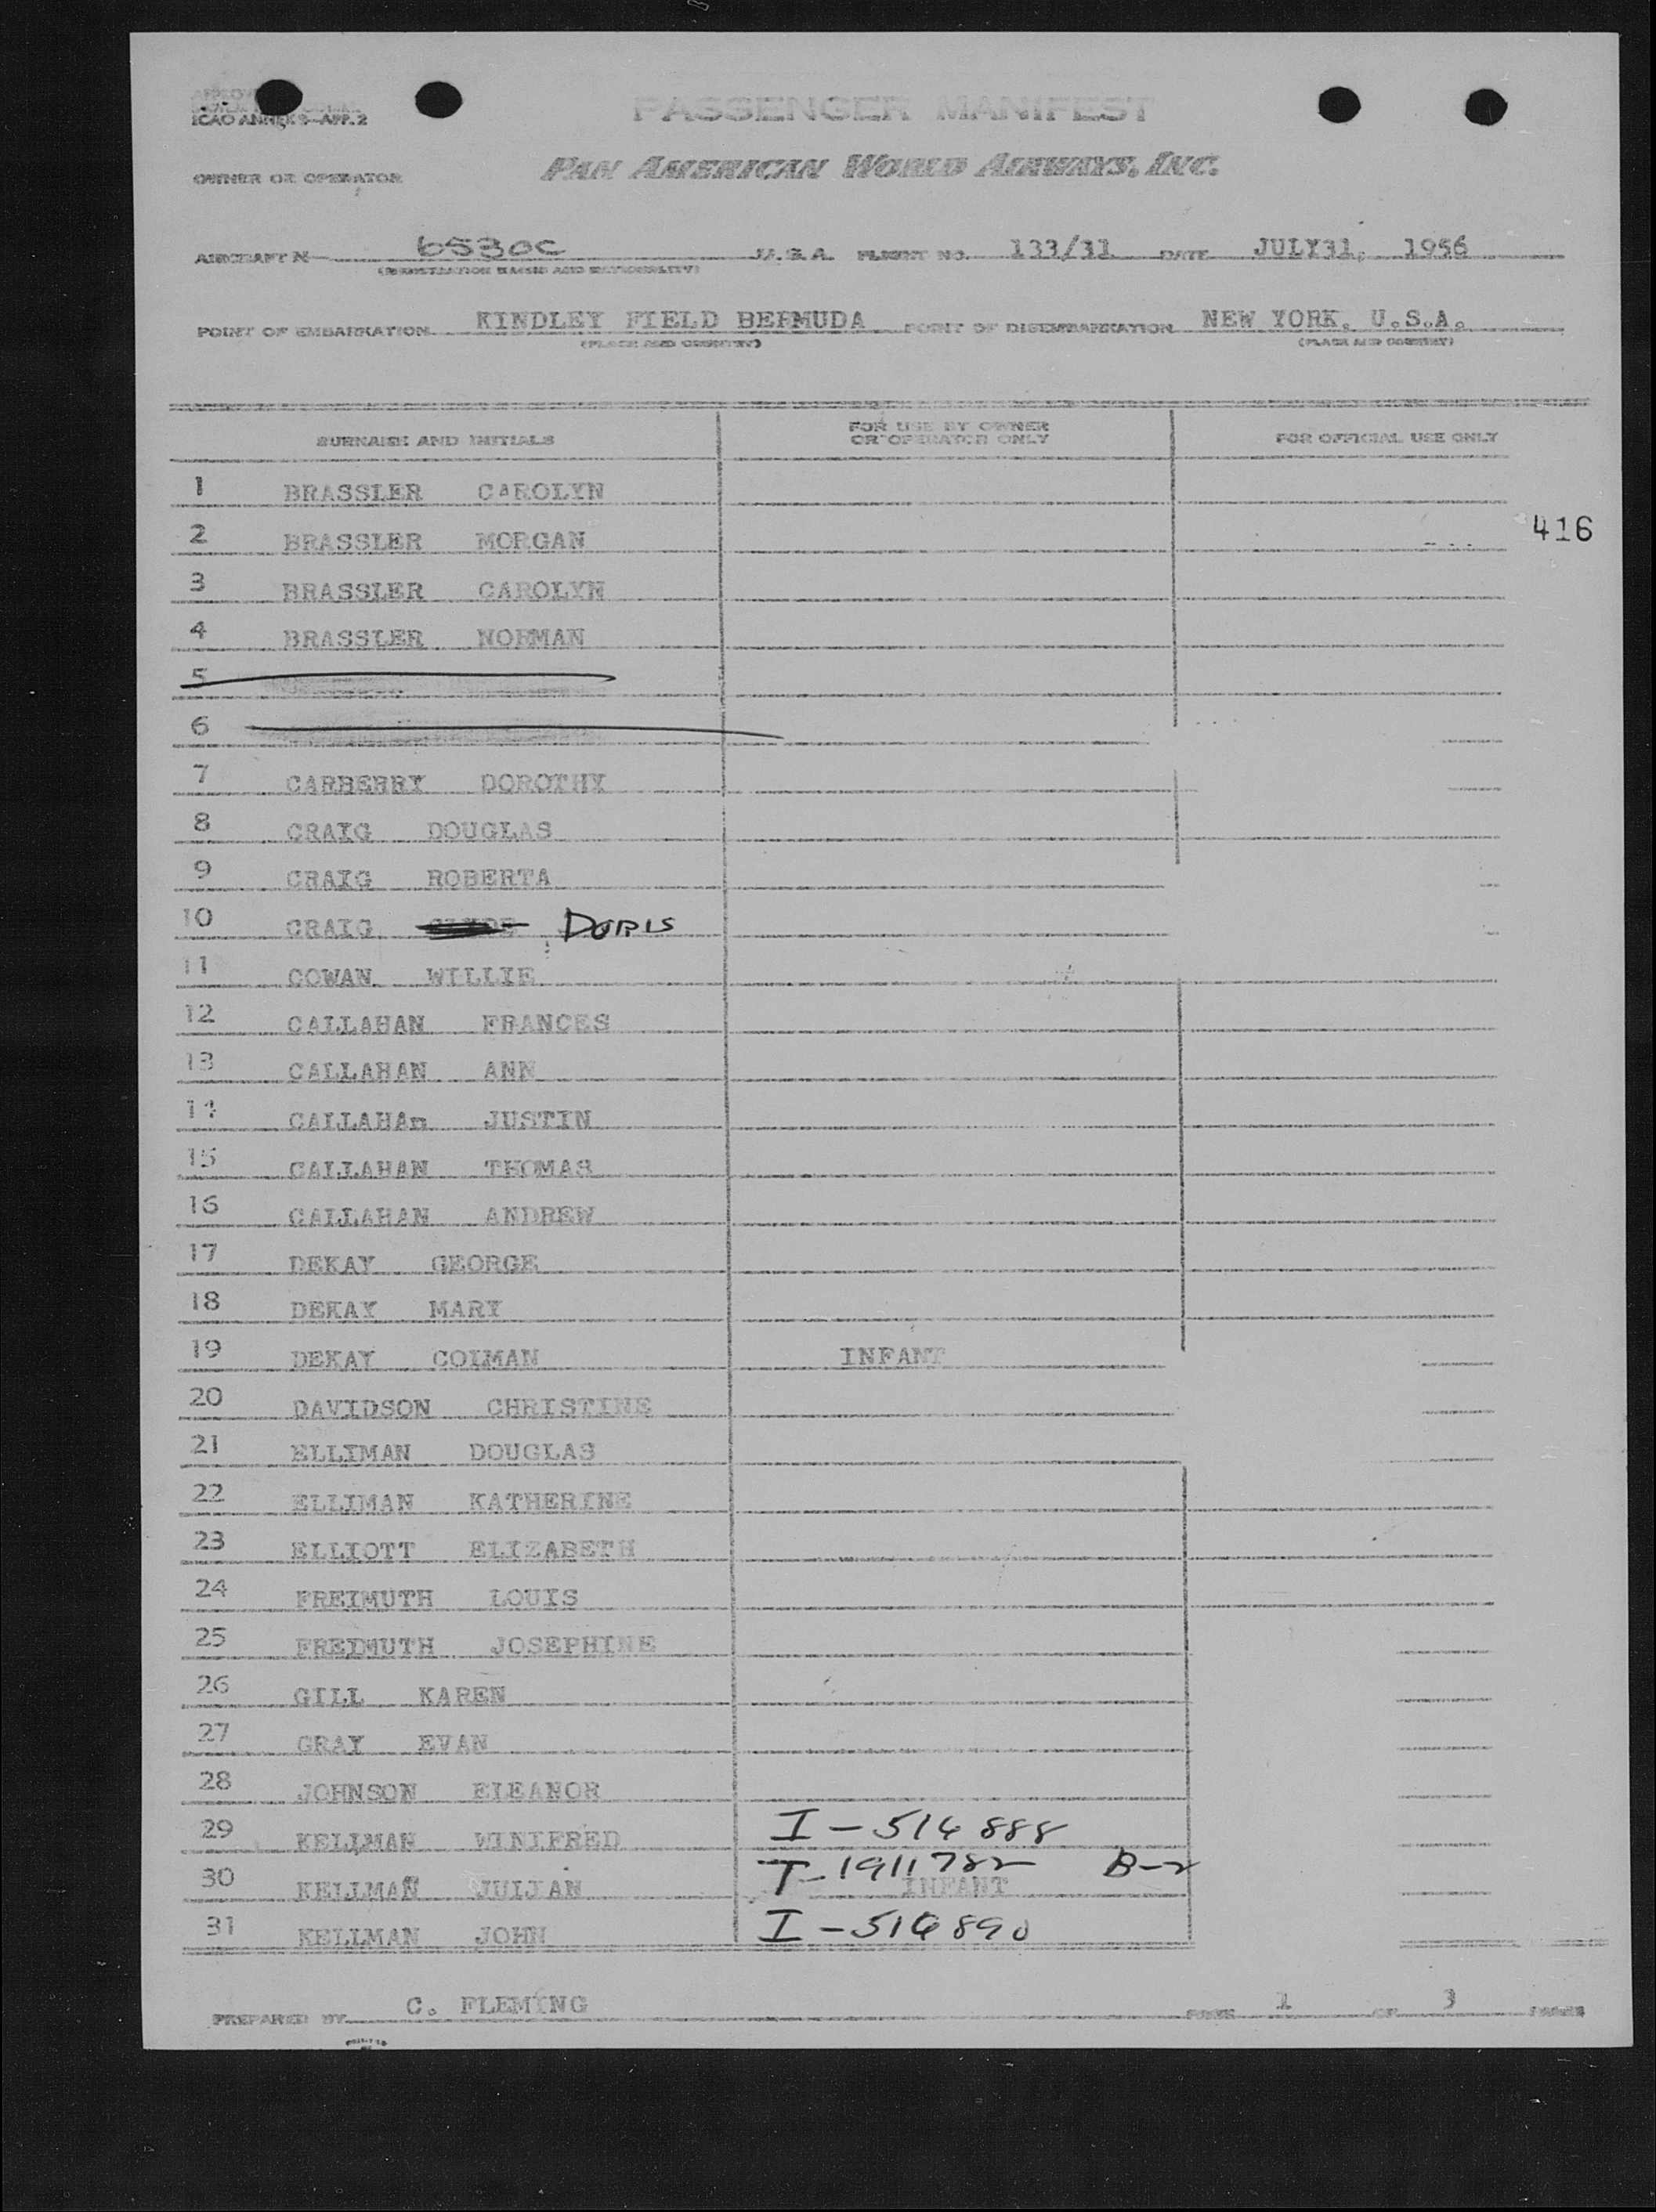 ICAO ANNEX 9-APP. 2
PASSENGER MANIFEST
OWNER OR OPERATOR PAN AMERICAN WORLD AIRWAYS, INC.
AIRCRAFT N- 6530C U.S.A. FLIGHT NO. 133/31 DATE JULY31, 1956
(REGISTRATION MARKS AND NATIONALITY)
POINT OF EMBARKATION KINDLEY FIELD BERMUDA POINT OF DISEMBARKATION NEW YORK, U.S.A.
(PLACE AND COUNTRY) (PLACE AND COUNTRY)
SURNAME AND INITIALS FOR USE BY OWNER OR OPERATOR ONLY FOR OFFICIAL USE ONLY
1 BRASSLER CAROLYN
416
2 BRASSLER MORGAN
3 BRASSLER CAROLYN
4 BRASSLER NORMAN
5
6
7 CARBERRY DOROTHY
8 CRAIG DOUGLAS
9 CRAIG ROBERTA
10 CRAIG DORIS
11 COWAN WILLIE
12 CALLAHAN FRANCES
13 CALLAHAN ANN
14 CALLAHAn JUSTIN
15 CALLAHAN THOMAS
16 CALLAHAN ANDREW
17 DEKAY GEORGE
18 DEKAY MARY
19 DEKAY COLMAN INFANT
20 DAVIDSON CHRISTINE
21 ELLIMAN DOUGLAS
22 ELLIMAN KATHERINE
23 ELLIOTT ELIZABETH
24 FREIMUTH LOUIS
25 FREIMUTH JOSEPHINE
26 GILL KAREN
27 GRAY EVAN
28 JOHNSON ELEANOR
29 KELLMAN WINIFRED I-516888
30 KELLMAN JULIAN T-1911782 B-2 INFANT
31 KELLMAN JOHN I-516890
PREPARED BY C. FLEMING PAGE 1 OF 3 PAGES